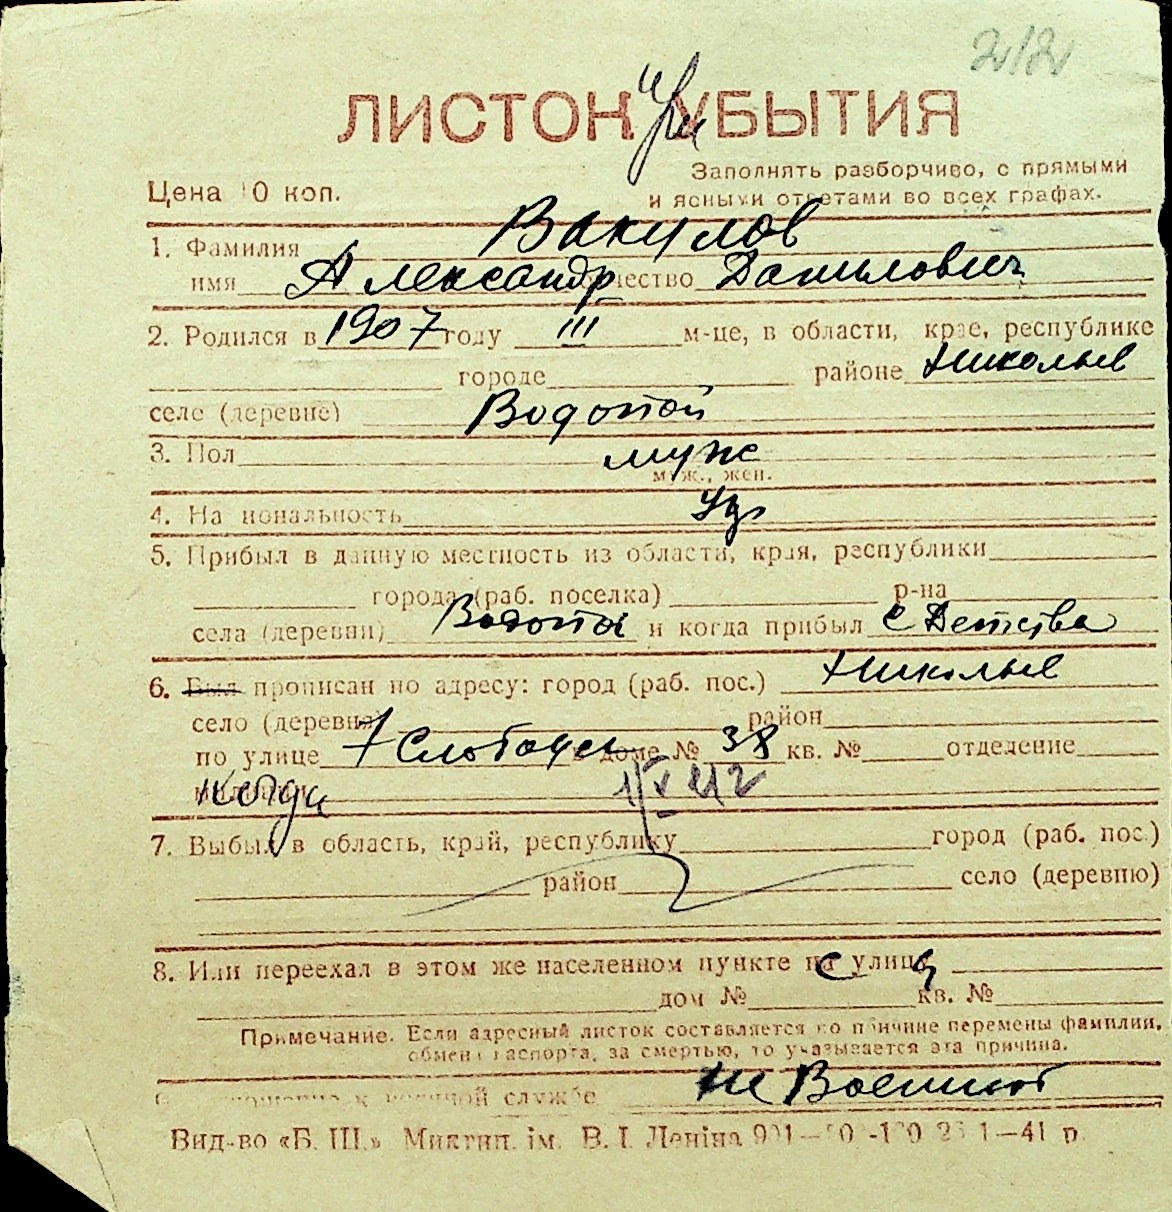 2/2
ЛИСТОК при УБЫТИЯ
Заполнять разборчиво, с прямыми
Цена 10 коп. и ясными ответами во всех графах.
1. Фамилия Вакулов
имя Александр отчество Данилович
2. Родился в 1907 году III м-це, в области, крае, республике
городе районе Николаев
селе (деревне) Водопой
3. Пол муж
муж., жен.
4. Национальность Укр
5. Прибыл в данную местность из области, края, республики
города (раб. поселка) р-на
села (деревни) Водопой и когда прибыл с Детства
6. Был прописан по адресу: город (раб. пос.) Николаев
село (деревня) район
по улице 7 Слободск в доме № 38 кв. № отделение
милиции когда 1/V 42
7. Выбыл в область, край, республику город (раб. пос.)
район село (деревню)
8. Или переехал в этом же населенном пункте на улицу с
дом № кв. №
Примечание. Если адресный листок составляется по причине перемены фамилии,
обмена паспорта, за смертью, то указывается эта причина.
отношение к военной службе не Военнот
Вид-во «Б. Ш.» Миктип. ім. В. І. Леніна 1—41 р.